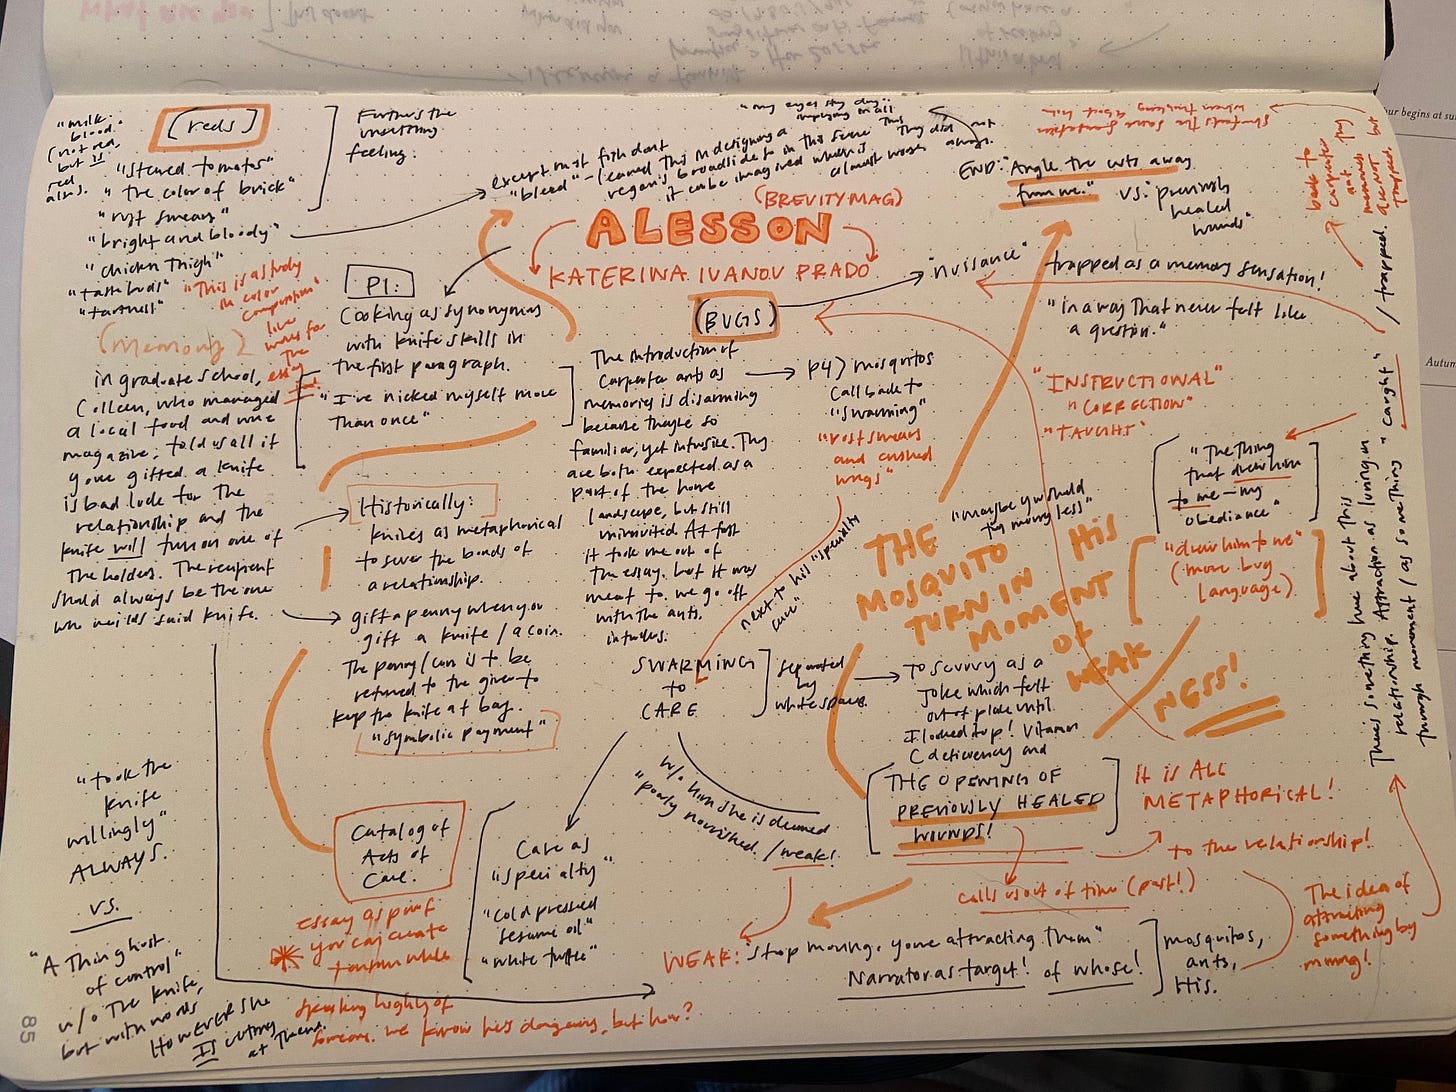 "milk-
blood."
(not red,
but is
red
also.
(reds)
"stewed tomatoes"
"the color of brick"
"rust smears"
"bright and bloody"
"chicken thigh"
"taste buds"
"tartness"
Furthers the
unsettling
feeling.
"This is a study
in color
composition"
like
works for
the
essay
too!
(memory)
in graduate school,
Colleen, who managed
a local food and wine
magazine, told us all if
you gifted a knife
is bad luck for the
relationship and the
knife will turn on one of
the holders. The recipient
should always be the one
who wields said knife.
except most fish don't
"bleed" - learned this in designing a
regan's broadside to in this scene this
it can be imagined where it
almost works always.
They did not
"my eyes stay dry":
implying in all
A LESSON
(BREVITY MAG)
KATERINA IVANOV PRADO
P1:
Cooking as synonymous
with knife skills in
the first paragraph.
"I've nicked myself more
than once"
Historically:
knives as metaphorical
to sever the bonds of
a relationship.
gift a penny when you
gift a knife / a coin.
The penny/coin is to be
returned to the giver to
keep the knife at bay.
"symbolic payment"
(BUGS)
The introduction of
carpenter ants as
memories is disarming
because they're so
familiar, yet intrusive. They
are both expected as a
part of the home
landscape, but still
uninvited. At first
it took me out of
the essay, but it was
meant to. we go off
with the ants.
intruders.
p4) mosquitos
Call back to
"swarming"
"rust smears
and crushed
wings"
"nuisance"
END: "Angle the cuts away
from me."
vs. previously
healed
wounds"
surfaces the same frustration
when thinking about him
back to
carpenter
ant
memories they
are not
trapped.
trapped as a memory sensation!
"in a way that never felt like
a question."
"INSTRUCTIONAL"
"CORRECTION"
"TAUGHT"
"The thing
that drew him
to me - my
obedience"
"drew him to me"
(more bug
language)
There's something here about this
relationship. Attraction as luring in
through movement (as something "caught" / trapped.
"maybe you should
try moving less"
THE
MOSQUITO
TURN IN HIS
MOMENT
OF
WEAK
NESS!
next to his "specialty
care"
SWARMING
to
CARE
separated
by
white space.
to scurvy as a
joke which felt
out of place until
I looked it up! Vitamin
C deficiency and
THE OPENING OF
PREVIOUSLY HEALED
WOUNDS!
It is ALL
METAPHORICAL!
to the relationship!
calls us out of time (past!)
The idea of
attracting
something by
moving!
w/o him she is deemed
"poorly nourished" / weak!
WEAK: "stop moving, you're attracting them"
Narrator as target! of whose!
mosquitos,
ants,
His.
Catalog of
Acts of
Care.
Care as
"specialty"
"cold pressed
sesame oil"
"white truffle"
essay as proof
you can create
tension while
speaking highly of
someone. we know he's dangerous, but how?
"took the
knife
willingly"
ALWAYS.
vs.
"A thing
of control"
w/o the knife,
but with words
HOWEVER she
IS cutting
at them.
85
our begins at su
Autum